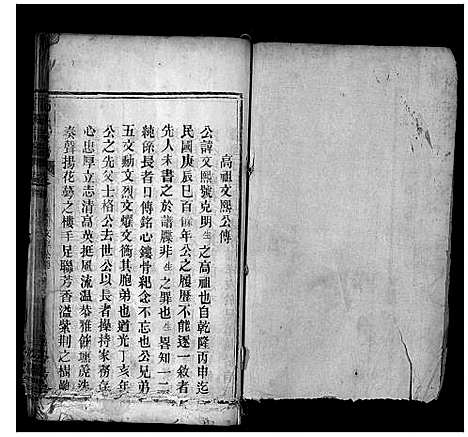 高祖文熙公傳
公諱文熙號克明生之高祖也自乾隆丙申迄
民國庚辰已百餘年公之履歷不能逐一敘者
先人未書之於譜牒非生之罪也生畧知一二
純係長者口傳銘心鏤骨紀念不忘也公兄弟
五文勳文烈文耀文衡其胞弟也道光丁亥年
公之先父士格公去世公以長者操持家務存
心忠厚立志清高英挺風流溫恭雅
奏聲揚花萼之樓手足聯芳香溢紫荆之樹